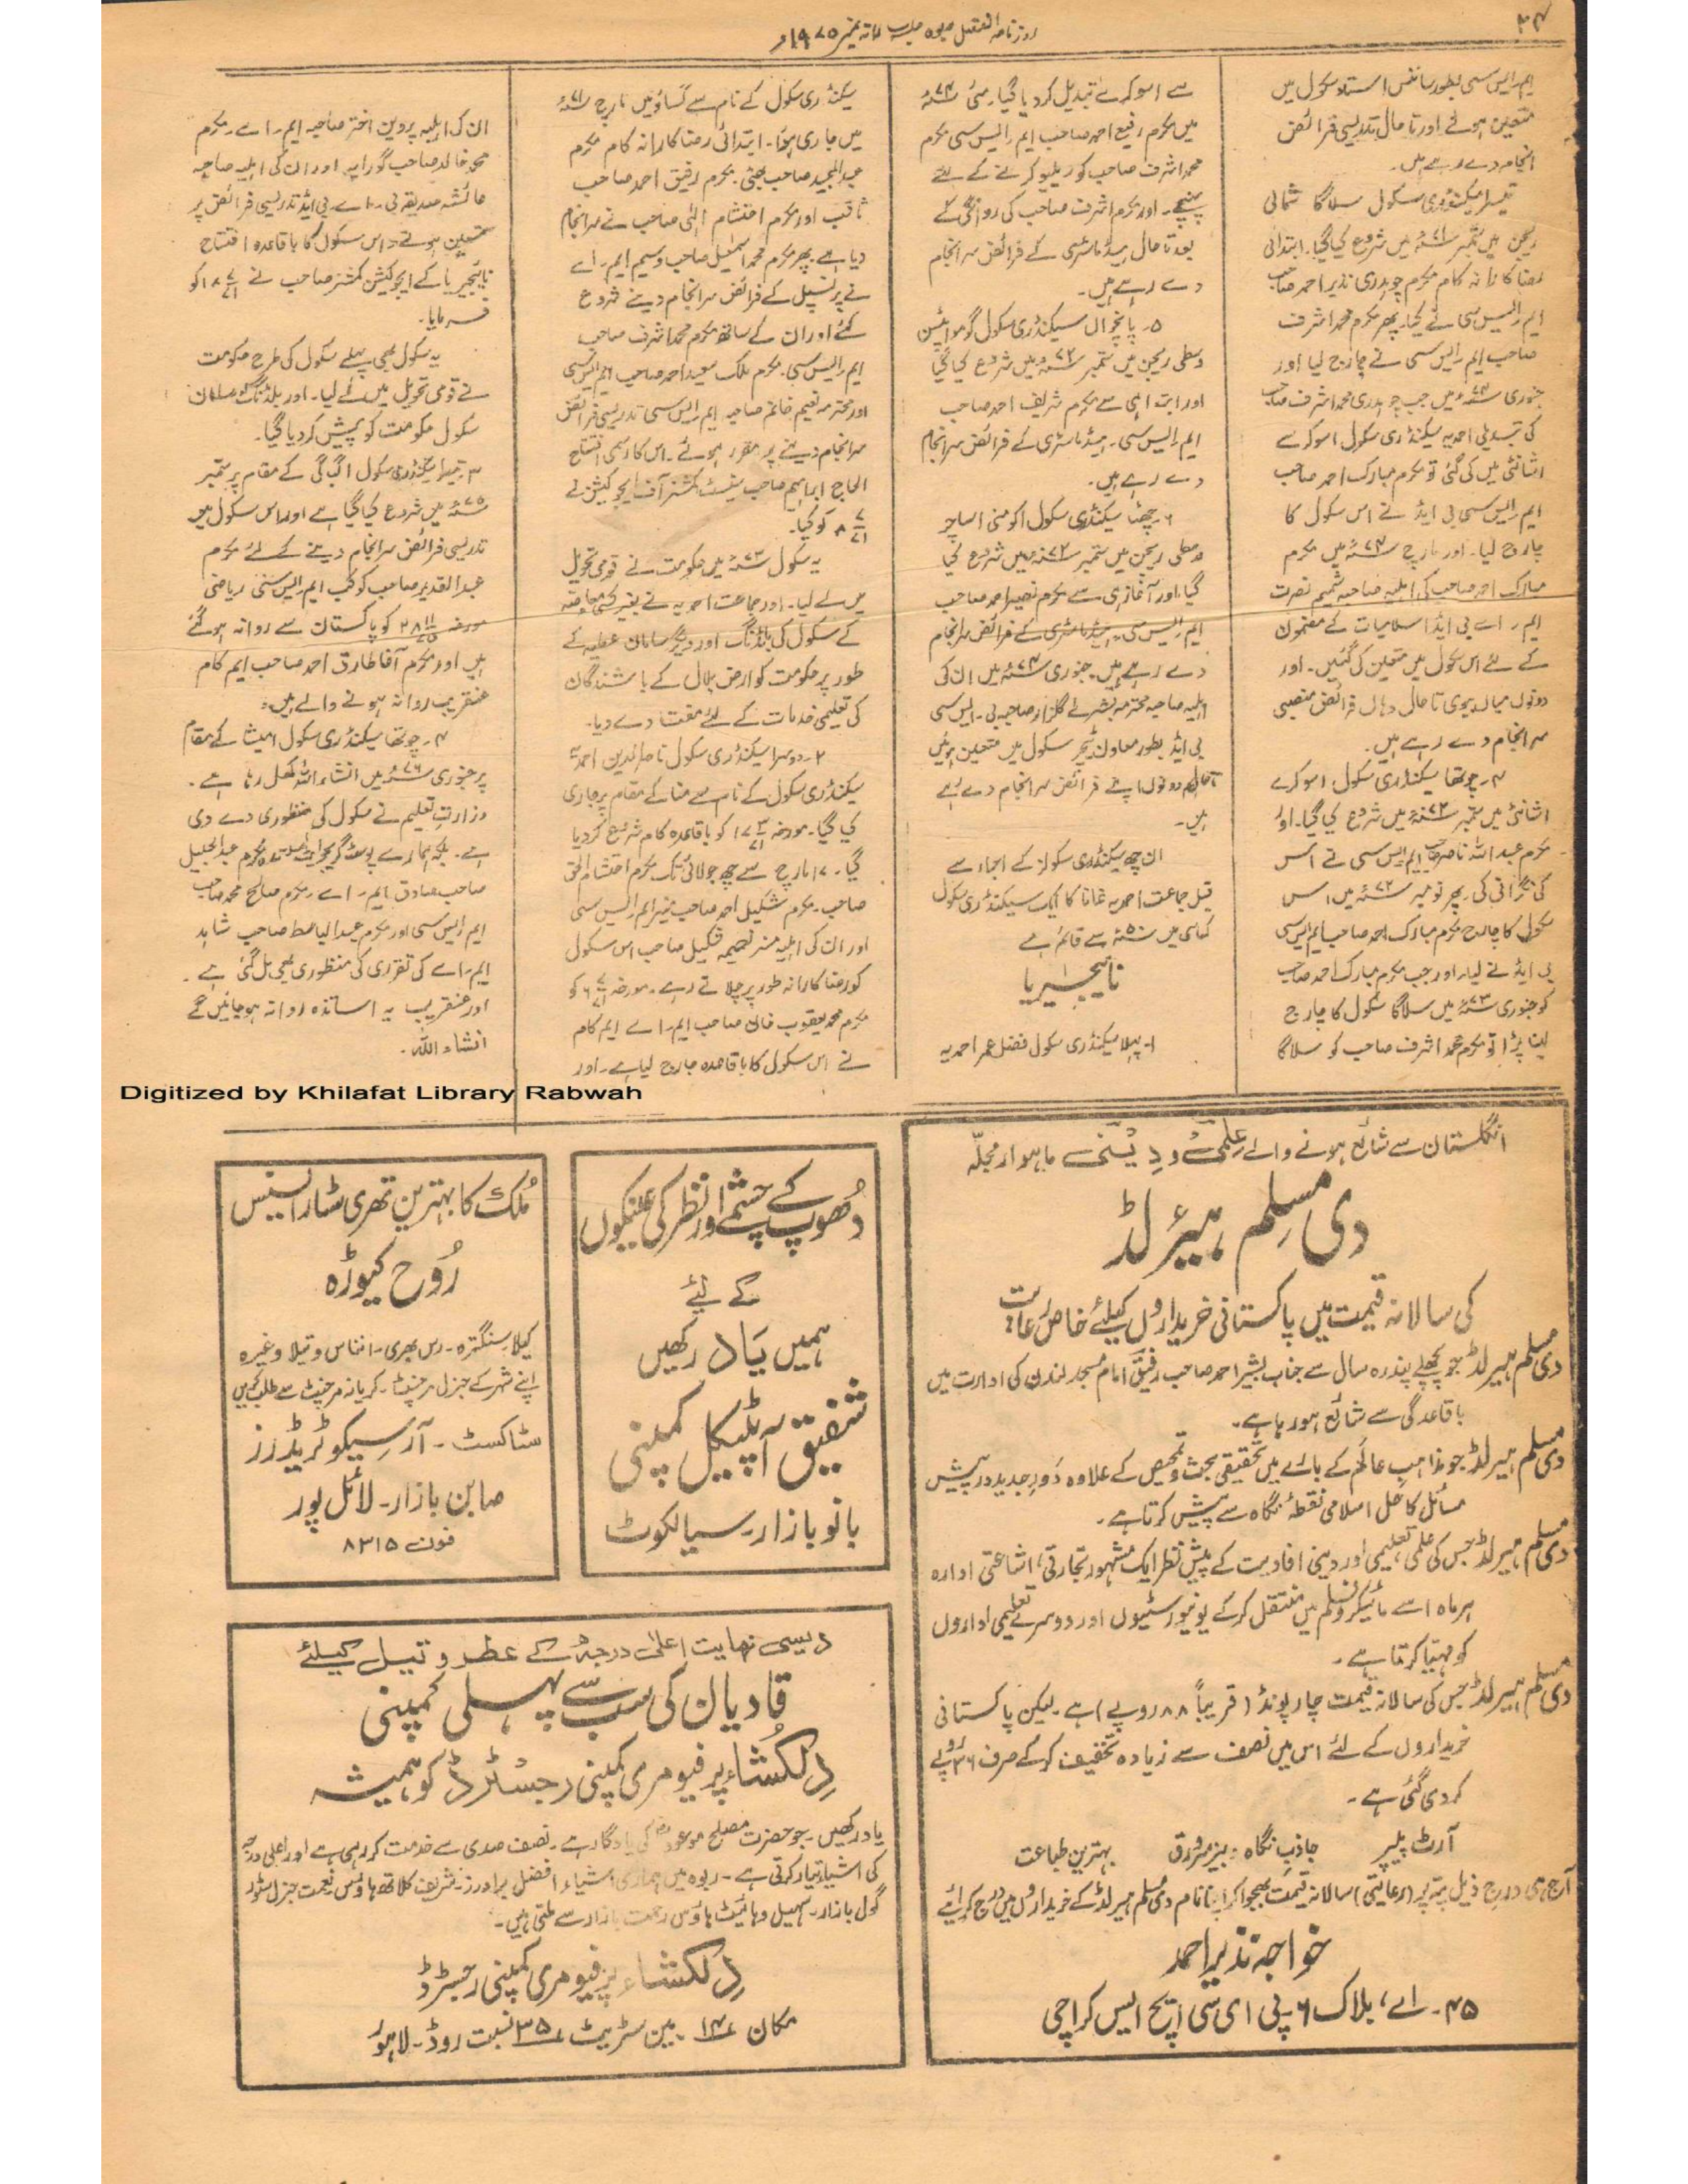 ۳۴
روزنامہ الفضل ربوہ جلسہ سالانہ نمبر ۱۹۷۵ء
ایم ایس سی بطور سائنس استاد سکول میں
متعین ہوئے اور تا حال تدریسی فرائض
انجام دے رہے ہیں۔
تیسرا سیکنڈری سکول سلاگا شمالی
ریجن میں ستمبر ۷۱ء میں شروع کیا گیا۔ ابتدائی
رضا کارانہ کام مکرم چوہدری نذیر احمد صاحب
ایم ایس سی نے کیا۔ پھر مکرم محمد اشرف
صاحب ایم ایس سی نے چارج لیا اور
جنوری ۷۳ء میں جب چوہدری محمد اشرف صاحب
کی تبدیلی احمدیہ سیکنڈری سکول اسوکرے
اشانٹی میں کی گئی تو مکرم مبارک احمد صاحب
ایم ایس سی بی ایڈ نے اس سکول کا
چارج لیا۔ اور مارچ ۷۴ء میں مکرم
مبارک احمد صاحب کی اہلیہ صاحبہ شمیم نصرت
ایم۔ اے بی ایڈ اسلامیات کے مضمون
کے لئے اس سکول میں متعین کی گئیں۔ اور
دونوں میاں بیوی تا حال وہاں فرائض منصبی
سر انجام دے رہے ہیں۔
۴۔ چوتھا سیکنڈری سکول اسوکرے
اشانٹی میں ستمبر ۷۲ء میں شروع کیا گیا۔ اور
مکرم عبداللہ ناصر صاحب ایم ایس سی نے اس
کی نگرانی کی۔ پھر نومبر ۷۲ء میں اس
سکول کا چارج مکرم مبارک احمد صاحب ایم ایس سی
بی ایڈ نے لیا۔ اور جب مکرم مبارک احمد صاحب
کو جنوری ۷۳ء میں سلاگا سکول کا چارج
لینا پڑا تو مکرم محمد اشرف صاحب کو سلاگا
سے اسوکرے تبدیل کر دیا گیا۔ مئی ۷۴ء
میں مکرم رفیع احمد صاحب ایم ایس سی مکرم
محمد اشرف صاحب کو ریلیو کرنے کے لئے
پہنچے۔ اور مکرم اشرف صاحب کی روانگی کے
بعد تا حال ہیڈ ماسٹری کے فرائض سر انجام
دے رہے ہیں۔
۵۔ پانچواں سیکنڈری سکول گوموا پٹسن
وسطی ریجن میں ستمبر ۷۲ء میں شروع کیا گیا
اور ابتدا ہی سے مکرم شریف احمد صاحب
ایم ایس سی۔ ہیڈ ماسٹری کے فرائض سر انجام
دے رہے ہیں۔
۶۔ چھٹا سیکنڈری سکول اکومنی اساچر
وسطی ریجن میں ستمبر ۷۲ء میں شروع کیا
گیا۔ اور آغاز ہی سے مکرم نصیر احمد صاحب
ایم ایس سی ہیڈ ماسٹری کے فرائض سر انجام
دے رہے ہیں۔ جنوری ۷۴ء میں ان کی
اہلیہ صاحبہ محترمہ بشریٰ گلزار صاحبہ بی۔ ایس سی
بی ایڈ بطور معاون ٹیچر سکول میں متعین ہوئیں
تا حال ہر دونوں اپنے فرائض سر انجام دے رہے
ہیں۔
ان چھ سیکنڈری سکولز کے اجراء سے
قبل جماعت احمدیہ غانا کا ایک سیکنڈری سکول
کماسی میں ۵۰ء سے قائم ہے
نائیجیریا
۱۔ پہلا سیکنڈری سکول فضل عمر احمدیہ
سیکنڈری سکول کے نام سے گساؤ میں مارچ ۷۱ء
میں جاری ہوا۔ ابتدائی رضا کارانہ کام مکرم
عبدالمجید صاحب بھٹی۔ مکرم رفیق احمد صاحب
ثاقب اور مکرم احتشام الٰہی صاحب نے سر انجام
دیا ہے۔ پھر مکرم محمد اسمٰعیل صاحب وسیم ایم۔ اے
نے پرنسپل کے فرائض سر انجام دینے شروع
کئے اور ان کے ساتھ مکرم محمد اشرف صاحب
ایم ایس سی۔ مکرم ملک سعید احمد صاحب ایم ایس سی
اور محترمہ نعیم خانم صاحبہ ایم ایس سی تدریسی فرائض
سر انجام دینے پر مقرر ہوئے۔ اس کا رسمی افتتاح
الحاج ابراہیم صاحب سٹیٹ کمشنر آف ایجوکیشن نے
۸ ۷/۷۱ کو کیا۔
یہ سکول ۷۳ء میں حکومت نے قومی تحویل
میں لے لیا۔ اور جماعت احمدیہ نے بغیر کسی معاوضہ
کے سکول کی بلڈنگ اور دیگر سامان عطیہ کے
طور پر حکومت کو ارض بلال کے باشندگان
کی تعلیمی خدمات کے لئے مفت دے دیا۔
۲۔ دوسرا سیکنڈری سکول ناصر الدین احمدیہ
سیکنڈری سکول کے نام سے منا کے مقام پر جاری
کیا گیا۔ مورخہ ۱۷ ۳/۷۱ کو باقاعدہ کام شروع کر دیا
گیا۔ ۱۷ مارچ سے چھ جولائی تک مکرم احتشام الحق
صاحب۔ مکرم شکیل احمد صاحب منیر ایم ایس سی
اور ان کی اہلیہ مسز نعیمہ شکیل صاحب اس سکول
کو رضا کارانہ طور پر چلاتے رہے۔ مورخہ ۶ ۷/۷۱ کو
مکرم محمد یعقوب خان صاحب ایم۔ اے ایم کام
نے اس سکول کا باقاعدہ چارج لیا ہے۔ اور
ان کی اہلیہ پروین اختر صاحبہ ایم۔ اے۔ مکرم
محمد خالد صاحب گورایہ اور ان کی اہلیہ صاحبہ
عائشہ صدیقہ بی۔ اے۔ بی ایڈ تدریسی فرائض پر
متعین ہوئے۔ اس سکول کا باقاعدہ افتتاح
نائیجیریا کے ایجوکیشن کمشنر صاحب نے ۱۸ ۷/۷۱ کو
فرمایا۔
یہ سکول بھی پہلے سکول کی طرح حکومت
نے قومی تحویل میں لے لیا۔ اور بلڈنگ و سامان
سکول حکومت کو پیش کر دیا گیا۔
۳۔ تیسرا سیکنڈری سکول اگبگی کے مقام پر ستمبر
۷۵ء میں شروع کیا گیا ہے اور اس سکول میں
تدریسی فرائض سر انجام دینے کے لئے مکرم
عبدالقدیر صاحب کوکب ایم ایس سی ریاضی
مورخہ ۲۸ ۱۱/۷۵ کو پاکستان سے روانہ ہو گئے
ہیں اور مکرم آغا طارق احمد صاحب ایم کام
عنقریب روانہ ہونے والے ہیں۔
۴۔ چوتھا سیکنڈری سکول امیشا کے مقام
پر جنوری ۷۶ء میں انشاء اللہ کھل رہا ہے۔
وزارت تعلیم نے سکول کی منظوری دے دی
ہے۔ بلکہ ہمارے پوسٹ گریجوایٹ اساتذہ مکرم عبدالجلیل
صاحب صادق ایم۔ اے۔ مکرم صالح محمد صاحب
ایم ایس سی اور مکرم عبدالباسط صاحب شاہد
ایم۔ اے کی تقرری کی منظوری بھی مل گئی ہے۔
اور عنقریب یہ اساتذہ روانہ ہو جائیں گے
انشاء اللہ۔
Digitized by Khilafat Library Rabwah
انگلستان سے شائع ہونے والے علمی و دینی ماہوار مجلّہ
دی مسلم ہیرلڈ
کی سالانہ قیمت میں پاکستانی خریداروں کیلئے خاص رعایت
دی مسلم ہیرلڈ جو پچھلے پندرہ سال سے جناب بشیر احمد صاحب رفیق امام مسجد لندن کی ادارت میں
باقاعدگی سے شائع ہو رہا ہے۔
دی مسلم ہیرلڈ جو مذاہب عالم کے بارے میں تحقیقی بحث و تمحیص کے علاوہ دَورِ جدید در پیش
مسائل کا حل اسلامی نقطۂ نگاہ سے پیش کرتا ہے۔
دی مسلم ہیرلڈ جس کی علمی، تعلیمی اور دینی افادیت کے پیش نظر ایک مشہور تجارتی، اشاعتی ادارہ
ہر ماہ اسے مائیکرو فلم میں منتقل کر کے یونیورسٹیوں اور دوسرے تعلیمی اداروں
کو مہیا کرتا ہے۔
دی مسلم ہیرلڈ جس کی سالانہ قیمت چار پونڈ (قریباً ۸۸ روپے) ہے۔ لیکن پاکستانی
خریداروں کے لئے اس میں نصف سے زیادہ تخفیف کر کے صرف ۳۶ روپے
کر دی گئی ہے۔
آرٹ پیپر جاذب نگاہ دبیز سرورق بہترین طباعت
آج ہی درج ذیل پتہ پر (رعایتی) سالانہ قیمت بھجوا کر اپنا نام دی مسلم ہیرلڈ کے خریداروں میں درج کرائیے
خواجہ نذیر احمد
۴۵۔ اے، بلاک ۶۔ پی ای سی ایچ ایس کراچی
دُھوپ کے چشمے اور نظر کی عینکوں
کے لئے
ہمیں یاد رکھیں
شفیق آپٹیکل کمپنی
بانو بازار۔ سیالکوٹ
مُلک کا بہترین تھری سٹار ایسنس
رُوح کیوڑہ
کیلا سنگترہ۔ رس بھری۔ انناس ونیلا وغیرہ
اپنے شہر کے جنرل مرچنٹ۔ کریانہ مرچنٹ سے طلب کریں
سٹاکسٹ۔ آر سیکو ٹریڈرز
صابن بازار۔ لائل پور
فون ۸۳۱۵
دیسی نہایت اعلیٰ درجہ کے عطر و تیل کیلئے
قادیان کی سب سے پہلی کمپنی
دِلکُشاء پرفیومری کمپنی رجسٹرڈ کو ہمیشہ
یاد رکھیں۔ جو حضرت مصلح موعودؓ کی یادگار ہے۔ نصف صدی سے خدمت کر رہی ہے اور اعلیٰ درجہ
کی اشیاء تیار کرتی ہے۔ ربوہ میں ہماری اشیاء افضل برادرز۔ شریف کلاتھ ہاؤس نعمت جنرل سٹور
گول بازار۔ سہیل وہائیٹ ہاؤس رحمت بازار سے ملتی ہیں۔
دِلکشاء پرفیومری کمپنی رجسٹرڈ
مکان ۱۴۔ مین سٹریٹ ۳۵ نسبت روڈ۔ لاہور